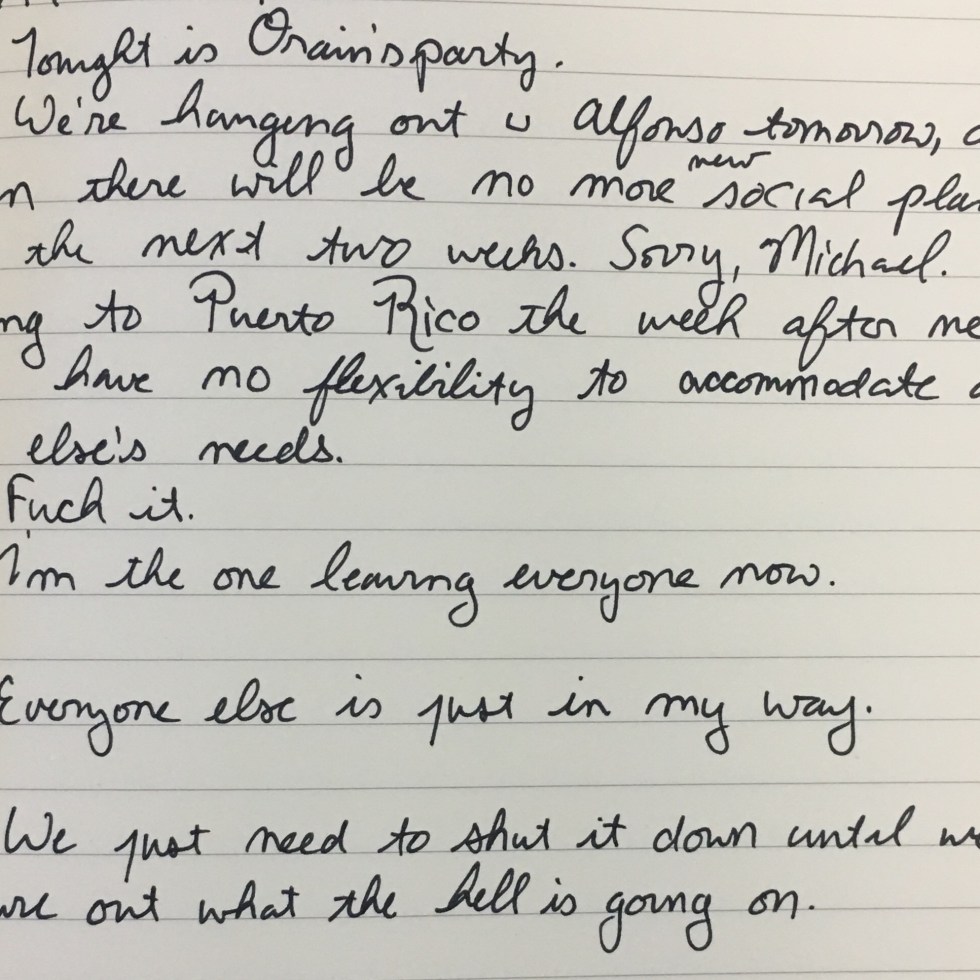 Tonight is Orain's party.
We're hanging out w Alfonso tomorrow, a
n there will be no more new social plan
the next two weeks. Sorry, Michael.
ng to Puerto Rico the week after ne
have no flexibility to accommodate a
else's needs.
Fuck it.
I'm the one leaving everyone now.
Everyone else is just in my way.
We just need to shut it down until we
ure out what the hell is going on.